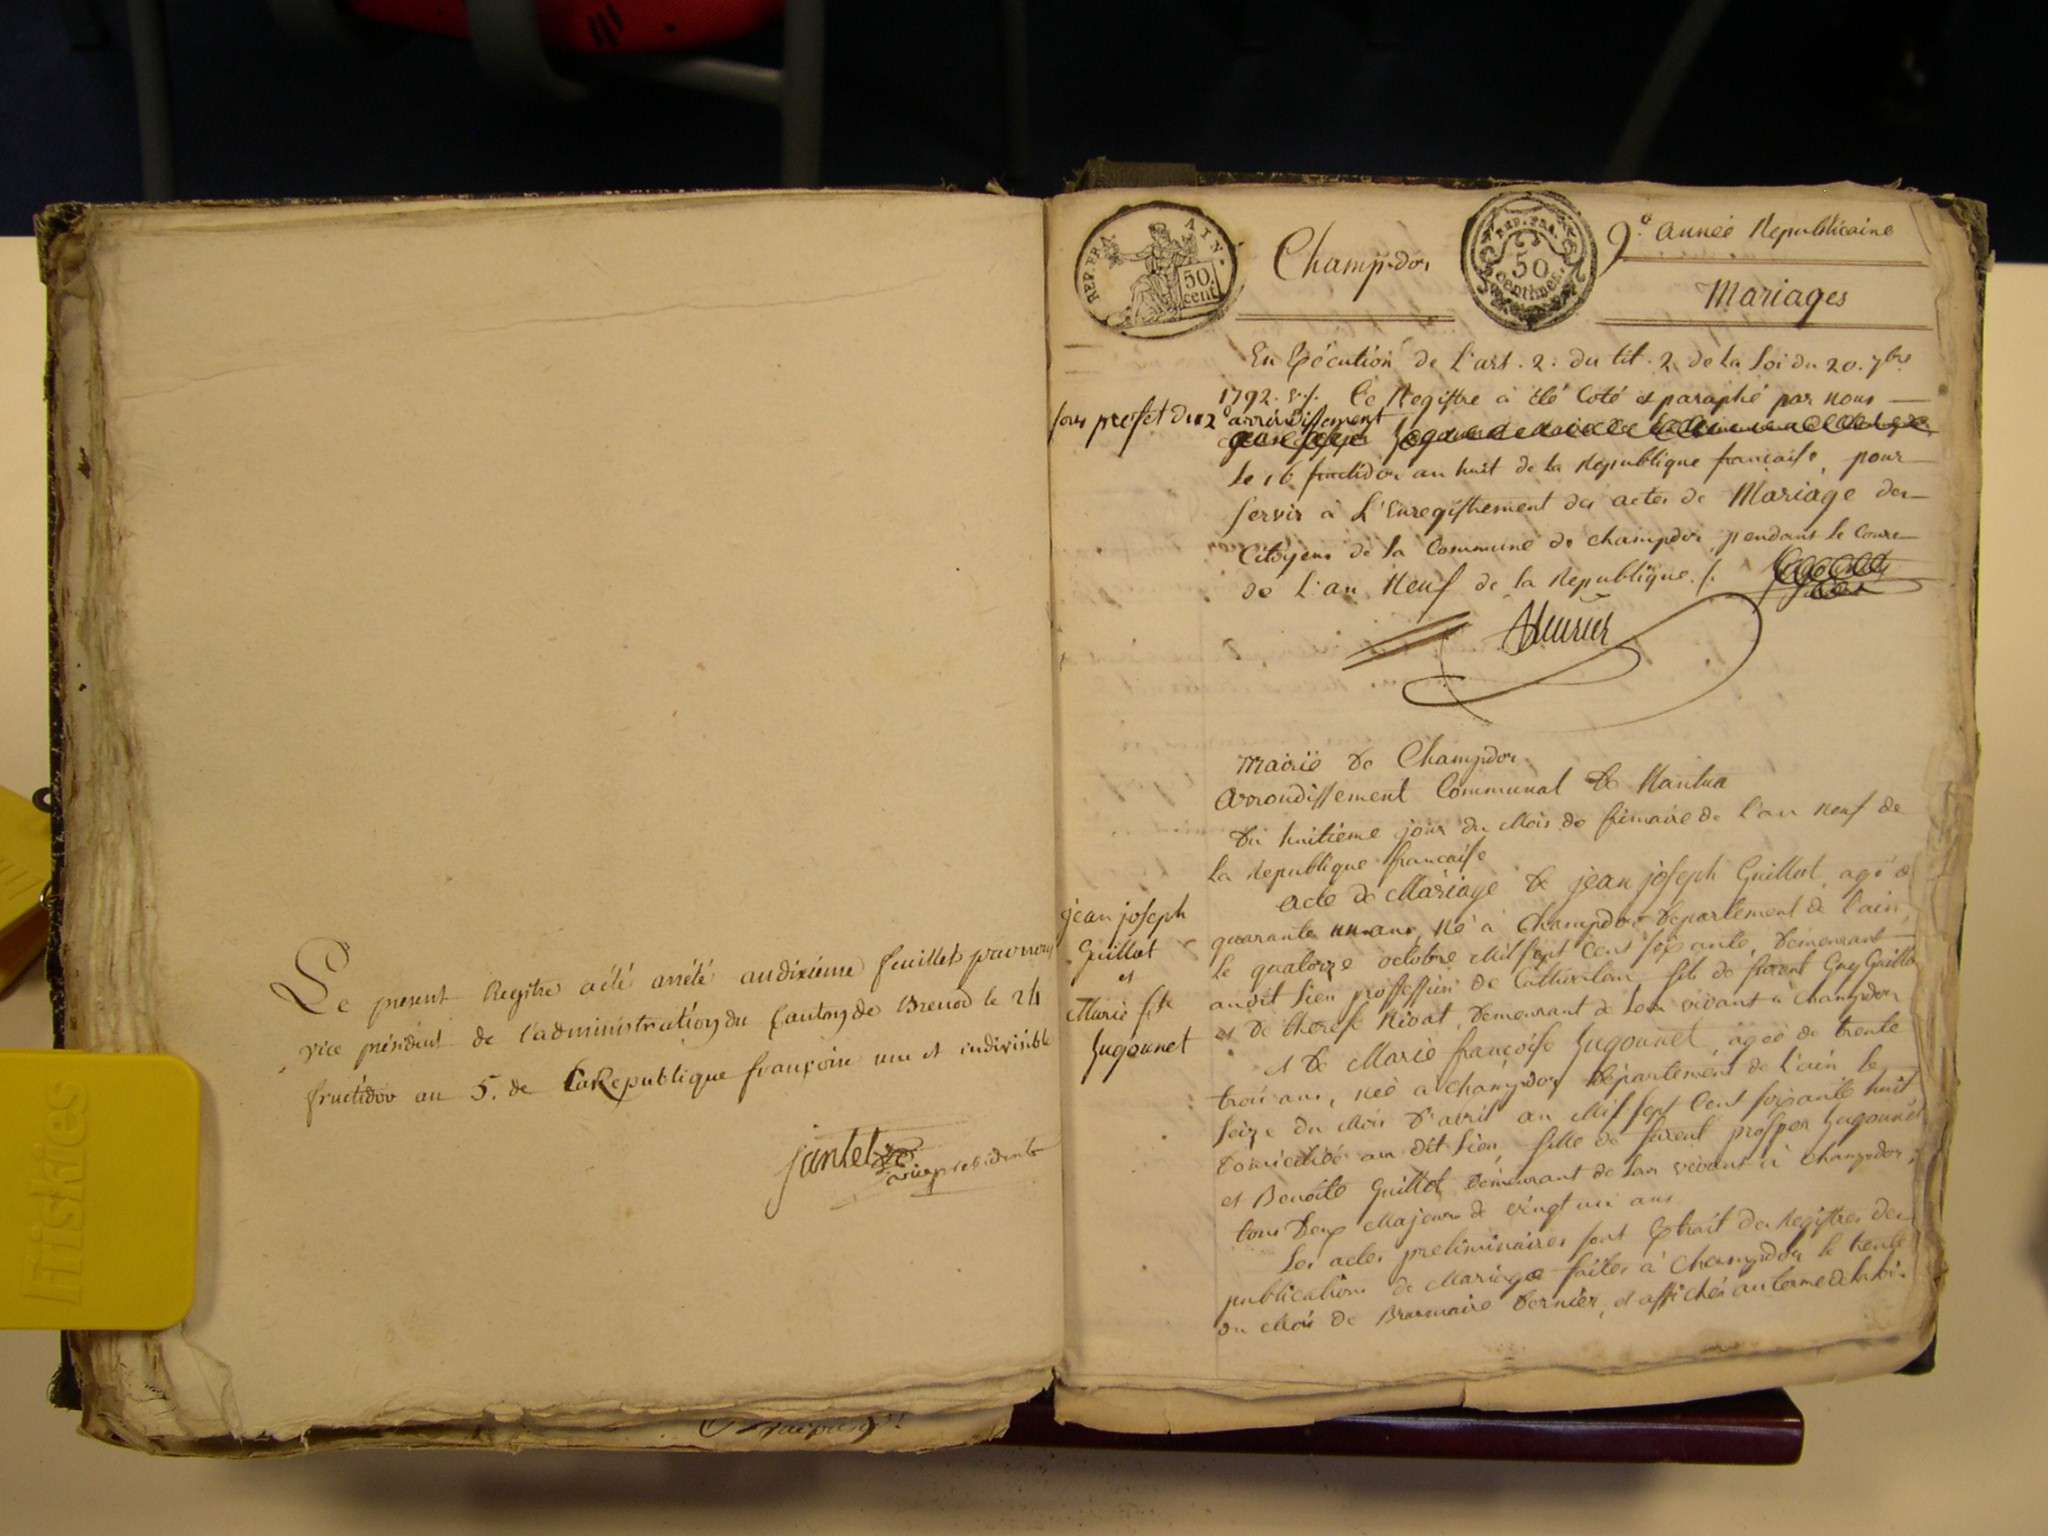 Le present Registre a été arrété au dixieme feuillet par nous
vice président de l'administration du Canton de Brenod le 24
fructidor an 5. de la Republique françoise une et indivisible
jantet
vice president
REP. FRA. AIN.
50
cent.
Champdor
REP. FRA.
50
Centimes.
9.e année Republicaine
Mariages
En Exécution de l'art. 2. du tit. 2. de la Loi du 20. 7bre
1792. v.s. Ce Registre a été Coté et paraphé par nous
sous prefet du 2e arrondissement
le 16 fructidor an huit de la Republique française, pour
servir à L'Enregistrement des actes de Mariage des
Citoyens de la Commune de champdor, pendant le Cours
de L'an Neuf de la Republique./.
Mairie de Champdor
Arrondissement Communal de Nantua
Du huitieme jour du Mois de frimaire de l'an neuf de
la Republique française
jean joseph
Guillot
et
Marie fse
Gugonnet
Acte de Mariage de jean joseph Guillot, agé de
quarante un ans, né à Champdor Departement de l'ain,
le quatorze octobre Mil sept Cent soixante, demeurant
audit lieu proffession de Cultivateur, fils de furent Guy Guillot
et de therese Rivat, demeurant de leur vivant à Champdor
et de Marie françoise Gugonnet, agée de trente
trois ans, née à Champdor Département de l'ain le
seize du Mois d'avril an Mil sept Cent soixante huit
Domiciliée au dit lieu, fille de furent prosper Gugonnet
et Benoite Guillot, demeurant de leur vivant à Champdor,
tous Deux Majeurs de vingt un ans
Les actes preliminaires sont Extrait des Registres des
publications de Mariage faites à Champdor le trente
du Mois de Brumaire dernier, et affichés au terme de la loi.
Fiskies